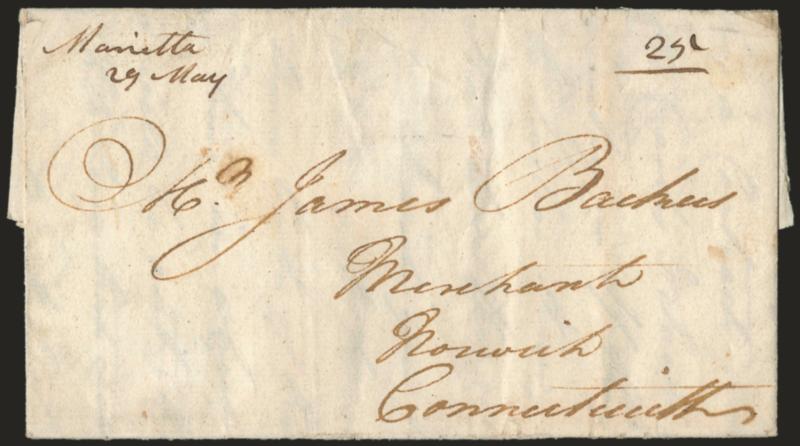 Marietta
29 May
25
Mr. James Backus
Merchant
Norwich
Connecticutt